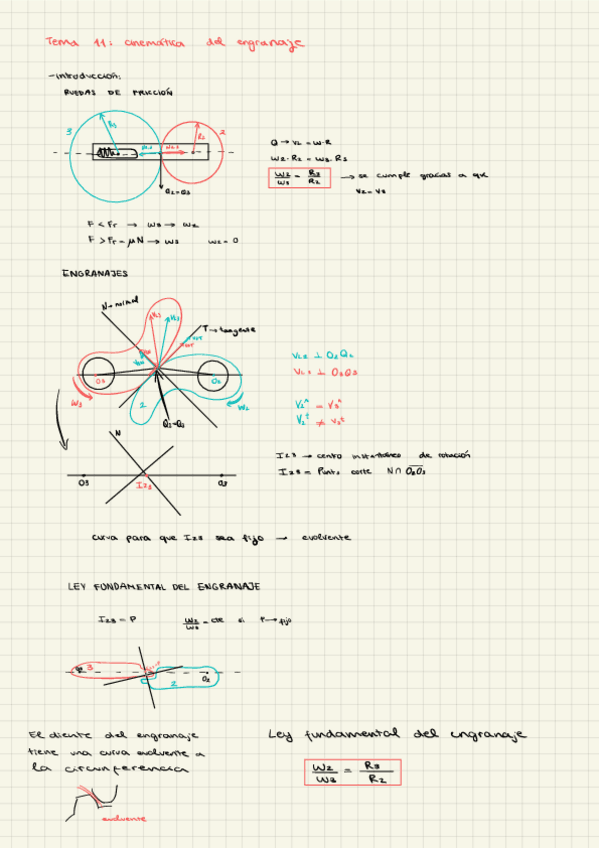 Tema 11: cinemática del engranaje
-introducción:
RUEDAS DE FRICCIÓN
3
R3
R2
2
Q2=Q3
Q → v2 = w·R
w2·R2 = w3·R3
w2/w3 = R3/R2 → se cumple gracias a que
v2=v3
F < Fr → w3 → w2
F > Fr = μN → w3 w2=0
ENGRANAJES
N→normal
T→tangente
O3
O2
w3
w2
2
Q2=Q3
V2 ⊥ O2Q2
V3 ⊥ O3Q3
V2ⁿ = V3ⁿ
V2ᵗ ≠ V3ᵗ
N
O3
I23
O2
I23 → centro instantáneo de rotación
I23 = Punto corte N∩O2O3
curva para que I23 sea fijo → evolvente
LEY FUNDAMENTAL DEL ENGRANAJE
I23 = P w2/w3 = cte si P→fijo
3
2
O2
El diente del engranaje
tiene una curva evolvente a
la circunferencia
evolvente
Ley fundamental del engranaje
w2/w3 = R3/R2